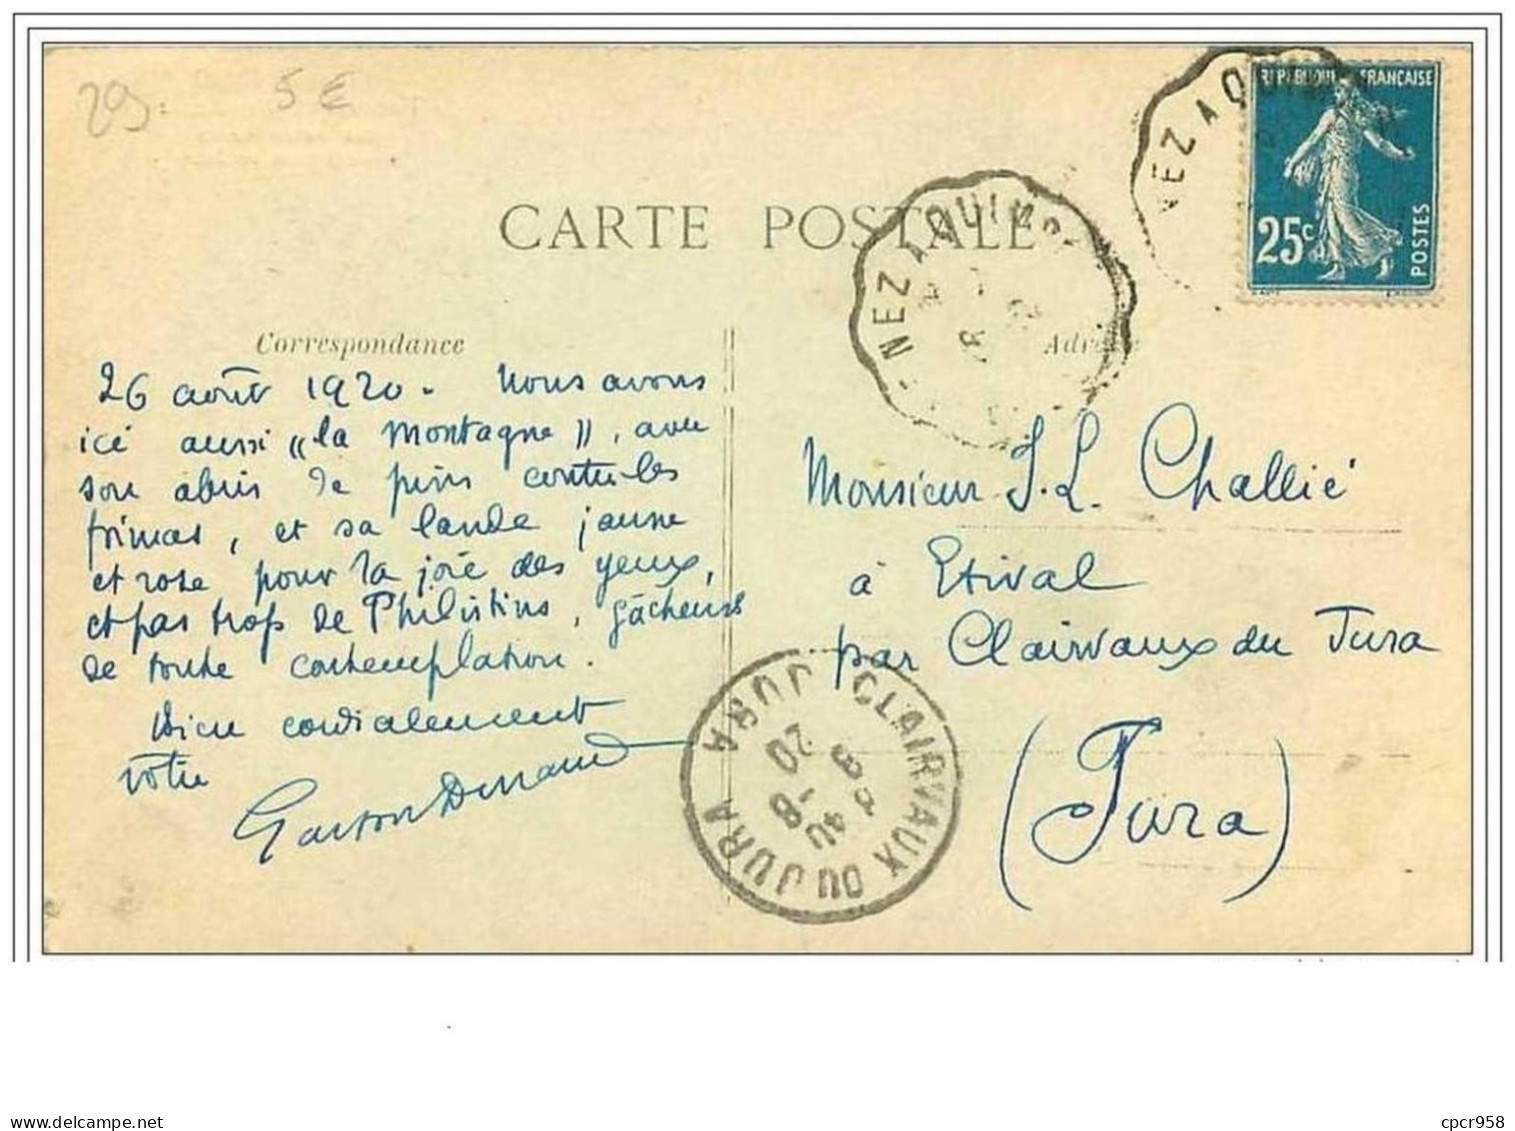 29.
5 €
RÉPUBLIQUE FRANÇAISE
25c
POSTES
NEZ A QUI
CARTE POSTALE
NEZ A QUIMP
Correspondance
26 août 1920. Nous avons
ici aussi "la montagne", avec
son abris de pins contre les
frimas, et sa lande jaune
et rose pour la joie des yeux,
et pas trop de Philistins, gâcheurs
de toute contemplation.
Bien cordialement
votre
Gaston
Monsieur J. L. Challié
à Etival
par Clairvaux du Jura
(Jura)
CLAIRVAUX DU JURA JURA
cpcr958